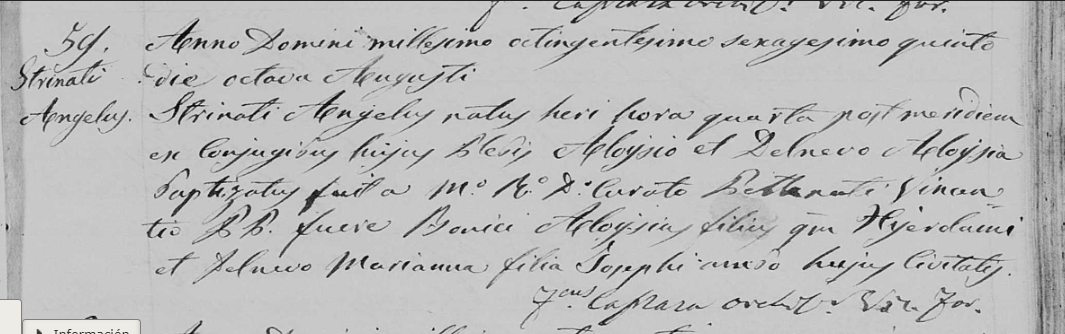 59.
Strinati
Angelus.
Anno Domini millesimo octingentesimo sexagesimo quinto
die octava Augusti
Strinati Angelus natus heri hora quarta post meridiem
ex Conjugibus hujus Plebis Aloysio et Delnevo Aloysia
Baptizatus fuit a M.o R.o D. Curato
tio PP. fuere Bonici Aloysius filius qm
et Delnevo Marianna filia Josephi hujus Civitatis.
Vic. For.
Anno Domini
Información